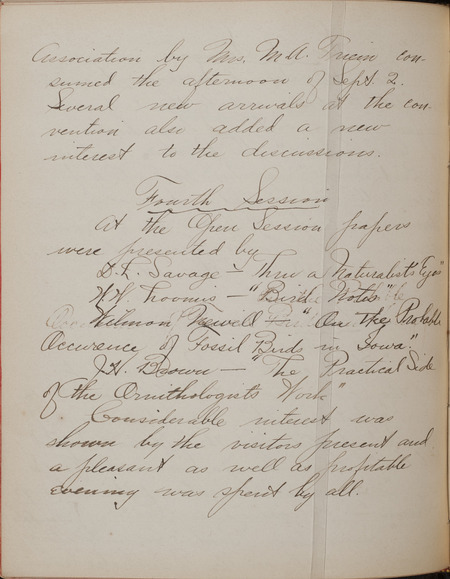 Association by Mrs. M.A. con-
sumed the afternoon of Sept. 2.
Several new arrivals at the con-
vention also added a new
interest to the discussions.
Fourth Session
At the Open Session papers
were presented by
D.L. Savage – "Thru a Naturalist's Eyes"
W.H. Loomis – "Bird Notes"
Wilmon Newell – "On the Probable
Occurence of Fossil Birds in Iowa"
J.H. Brown – "The Practical Side
of the Ornithologists Work"
Considerable interest was
shown by the visitors present and
a pleasant as well as profitable
evening was spent by all.